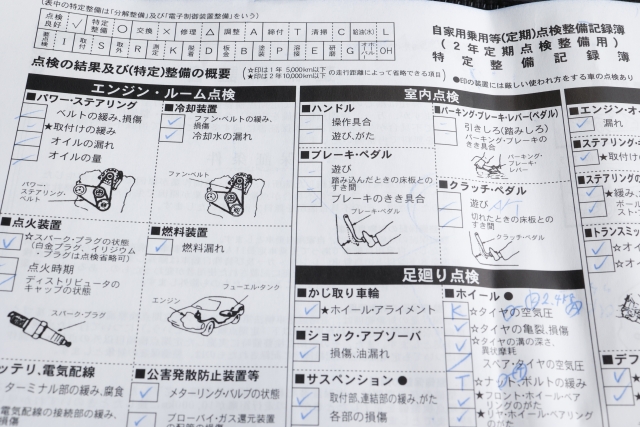 (表中の特定整備は「分解整備」及び「電子制御装置整備」をいう)
点検良好 ✓ 特定整備 ○ 交換 × 修理 △ 調整 A 締付 T 清掃 C 給油(水) L
要点検 I 取付 S 取外 R 測定 K 脱着 D 板金 B 塗装 P 溶接 E 研磨 G オーバーホール OH
自家用乗用等(定期)点検整備記録簿
(2年定期点検整備用)
特定整備記録簿
点検の結果及び(特定)整備の概要
☆印は1年 5,000km以下
★印は2年10,000km以下
の走行距離によって省略できる項目
●印の装置には厳しい使われ方をする車の点検あり
エンジン・ルーム点検
■パワー・ステアリング
ベルトの緩み、損傷
★取付けの緩み
オイルの漏れ
オイルの量
パワー・ステアリング・ベルト
■点火装置
☆スパーク・プラグの状態
(白金プラグ、イリジウム・プラグは点検省略可)
点火時期
ディストリビュータのキャップの状態
スパーク・プラグ
ッテリ、電気配線
ターミナル部の緩み、腐食
電気配線の接続部の緩み、
■冷却装置
ファン・ベルトの緩み、損傷
冷却水の漏れ
ファン・ベルト
■燃料装置
燃料漏れ
フューエル・タンク
エンジン
■公害発散防止装置等
メターリング・バルブの状態
ブローバイ・ガス還元装置
の配管の損傷
室内点検
■ハンドル
操作具合
遊び、がた
■ブレーキ・ペダル
遊び
踏み込んだときの床板とのすき間
ブレーキのきき具合
ブレーキ・ペダル
■パーキング・ブレーキ・レバー(ペダル)
引きしろ(踏みしろ)
パーキング・ブレーキのきき具合
パーキング・ブレーキ・レバー
■クラッチ・ペダル
遊び A/T
切れたときの床板とのすき間
クラッチ・ペダル
足廻り点検
■かじ取り車輪
★ホイール・アライメント
■ショック・アブソーバ
損傷、油漏れ
■サスペンション●
取付部、連結部の緩み、がた
各部の損傷
■ホイール●
K ☆タイヤの空気圧
☆タイヤの亀裂、損傷
☆タイヤの溝の深さ、異状摩耗
スペア・タイヤの空気圧
T ☆ナット、ボルトの緩み
★フロント・ホイール・ベアリングのがた
★リヤ・ホイール・ベアリングのがた
■エンジン・オ
漏れ
■ステアリング
★取付け
■ステアリングの
★緩み、
ボール
スト・
■トランスミッ
☆オイ
☆オイ
■デフ